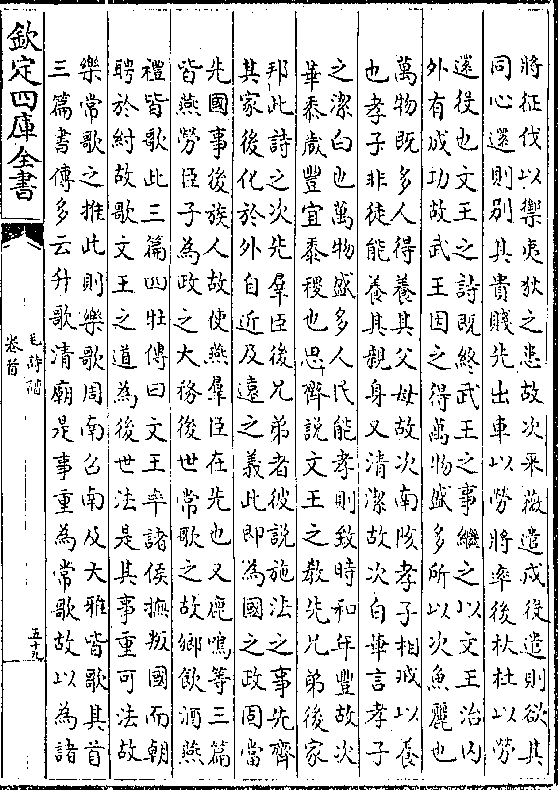 將征伐以禦夷狄之患故次采薇遣戍役遣則欲其
同心還則别其貴賤先出車以勞將率後杕杜以勞
還役也文王之詩既終武王之事繼之以文王治内
外有成功故武王因之得萬物盛多所以次魚麗也
萬物既多人得養其父母故次南陔孝子相戒以養
也孝子非徒能養其親身又清潔故次白華言孝子
之潔白也萬物盛多人民能孝則致時和年豐故次
華黍歲豐宜黍稷也思齊說文王之教先兄弟後家
邦此詩之次先羣臣後兄弟者彼說施法之事先齊
其家後化於外自近及遠之義此即為國之政固當
先國事後族人故使燕羣臣在先也又鹿鳴等三篇
皆燕勞臣子為政之大務後世常歌之故鄉飲酒燕
禮皆歌此三篇四牡傳曰文王率諸侯撫叛國而朝
聘於紂故歌文王之道為後世法是其事重可法故
樂常歌之推此則樂歌周南召南及大雅皆歌其首
三篇書傳多云升歌清廟是事重為常歌故以為諸
欽定四庫全書
毛詩疏
卷首
五十九